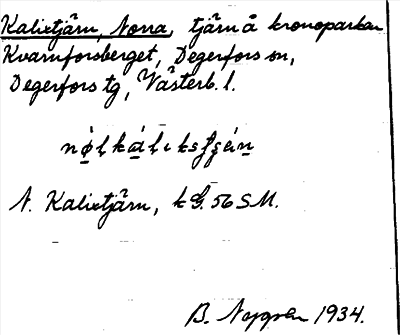 Kalixtjärn, Norra, tjärn å kronoparken
Kvarnforsberget, Degerfors sn,
Degerfors tg, Västerb. l.
N. Kalixtjärn, k G. 56 SM.
B. 1934.